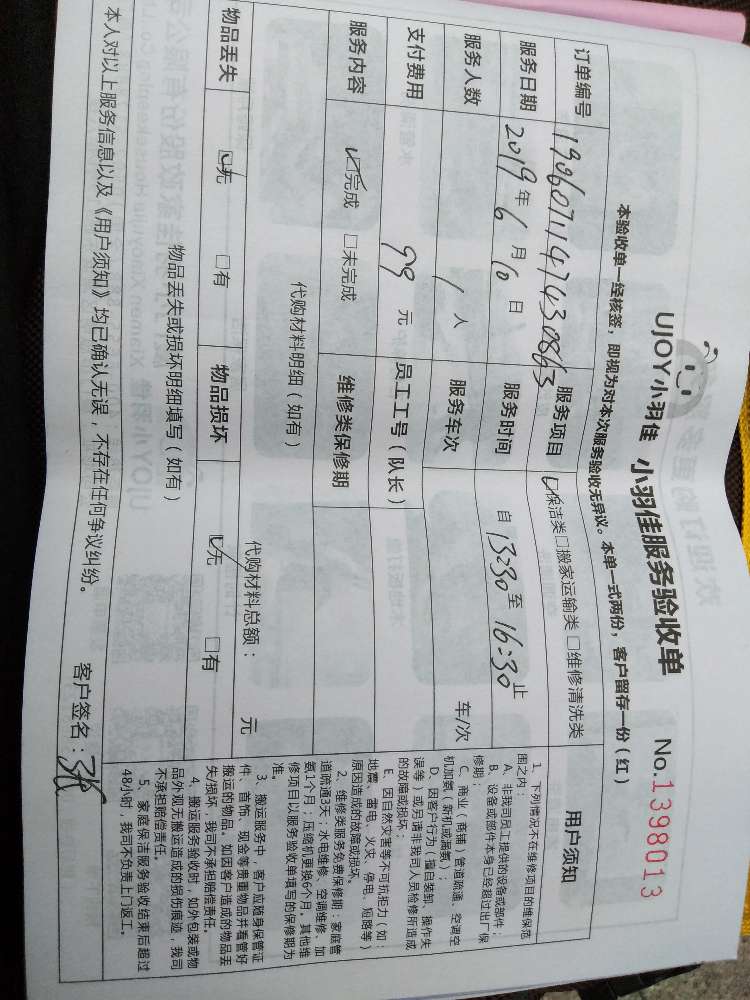 UJOY小羽佳 小羽佳服务验收单 No.1398013
本验收单一经核签，即视为对本次服务验收无异议。本单一式两份，客户留存一份（红）
订单编号 190607114743.0863 服务项目 保洁类□搬家运输类□维修清洗类
服务日期 2019年6月10日 服务时间 自13:30至16:30止
服务人数 1人 服务车次 车/次
支付费用 99元 员工工号（队长）
服务内容 完成 □未完成 维修类保修期
代购材料明细（如有） 代购材料总额： 元
物品丢失 无 □有 物品损坏 无 □有
物品丢失或损坏明细填写（如有）
本人对以上服务信息以及《用户须知》均已确认无误，不存在任何争议纠纷。
客户签名：张
用户须知
1、下列情况不在维修项目的维保范
围之内：
A、非我司员工提供的设备或部件；
B、设备或部件本身已经超过出厂保
修期；
C、商业（商铺）管道疏通、空调空
机加氨（新机或漏氨）；
D、因客户行为（擅自装卸、操作失
误等）或另请非我司人员检修所造成
的故障或损坏；
E、因自然灾害等不可抗拒力（如：
地震、雷电、火灾、停电、短路等）
原因造成的故障或损坏。
2、维修类服务免费保修期：家庭管
道疏通3天；水电维修、空调维修、加
氨1个月；压缩机更换6个月。其他维
修项目以服务验收单填写的保修期为
准。
3、搬运服务中，客户应随身保管证
件、首饰、现金等贵重物品并看管好
搬运的物品。如因客户造成的物品丢
失/损坏，我司不承担赔偿责任。
4、搬运服务验收时，如外包装或物
品外观无搬运造成的损伤痕迹，我司
不承担赔偿责任。
5、家庭保洁服务验收结束后超过
48小时，我司不负责上门返工。